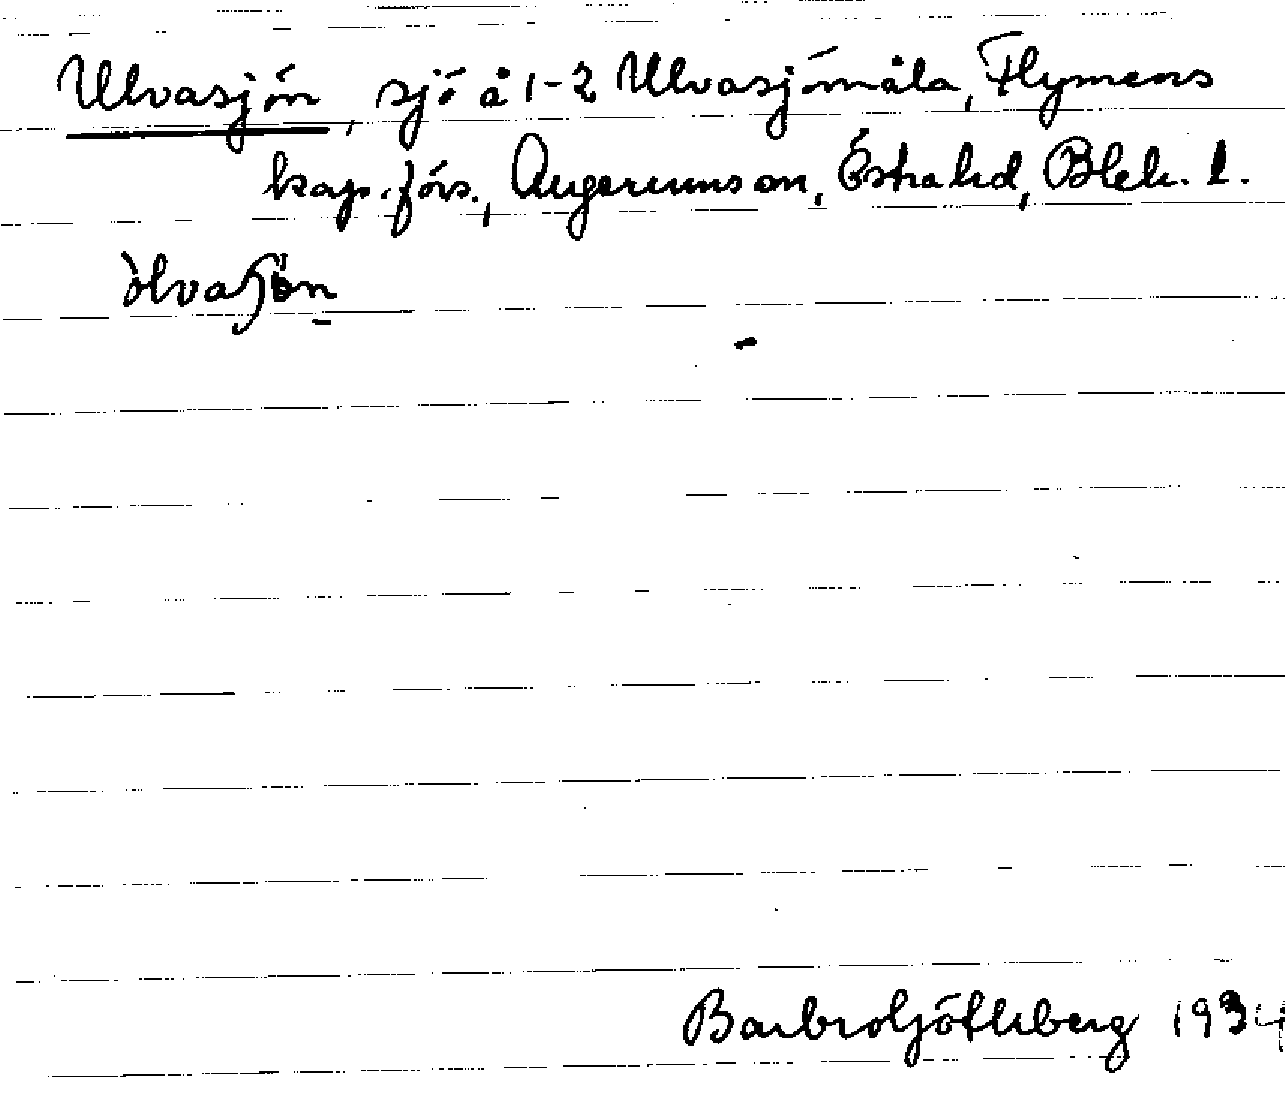 Ulvasjön, sjö å 1-2 Ulvasjömåla, Flymens
kap. förs., Augerums sn, Östra hd, Blek. l.
Barbro Götlberg 1934